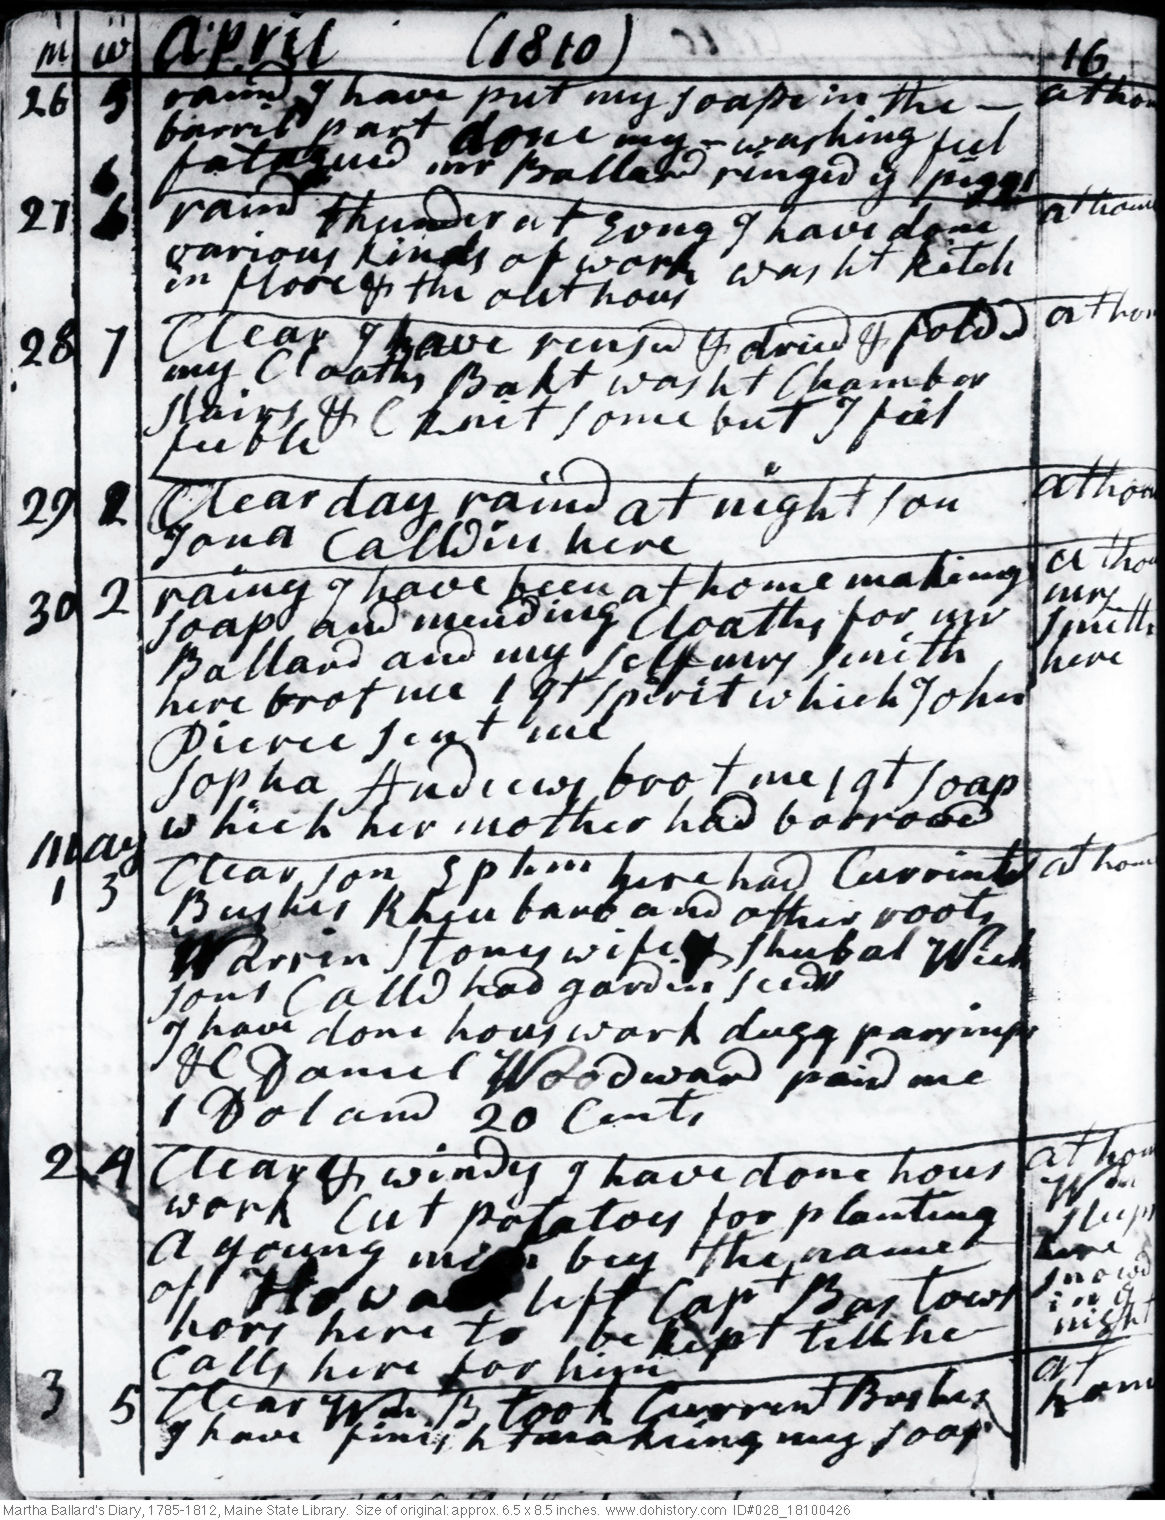 m w April (1810) 16
26 5 raind I have put my soape in the – at hom
barril part done my washing feel
fatagued mr Ballard ringed ye piggs
6
27 6 raind thunder at Evng I have done at home
various kinds of work washt kitch
in floore & the outhous
28 7 Clear I have rensd & dried & folded at hom
my Cloaths Bakt washt Chamber
stairs &C Knit some but I feel
feeble
29 1 Clear day raind at night son at hom
Jona Calld in here
30 2 rainy I have been at home making at hom
soap and mending Cloaths for mr mrs
Ballard and my self mrs smith smith
here brot me 1 qt spirit which John here
Pierce sent me
sopha Andrews brot me 1 qt soap
which her mother had borrowd
may
1 3 Clear son Ephm here had Currints at home
Bushes Rheubarb and other roots
Warrin Stones wife & shubal Wick
sons Calld had garden seeds
I have done hous work dugg parsnips
&C Daniel Woodward paid me
1 Dol and 20 Cents
2 4 Clear & windy I have done hous at hom
work Cut potatoes for planting Wm
A young man buy the name sleeps
of Howard left Capt Bastows here
hors here to be kept till he snowd
Calls here for him in ye night
3 5 Clear Wm B took Current Bushes at
I have finisht making my soap home
Martha Ballard's Diary, 1785-1812, Maine State Library. Size of original: approx. 6.5 x 8.5 inches. www.dohistory.com ID#028_18100426